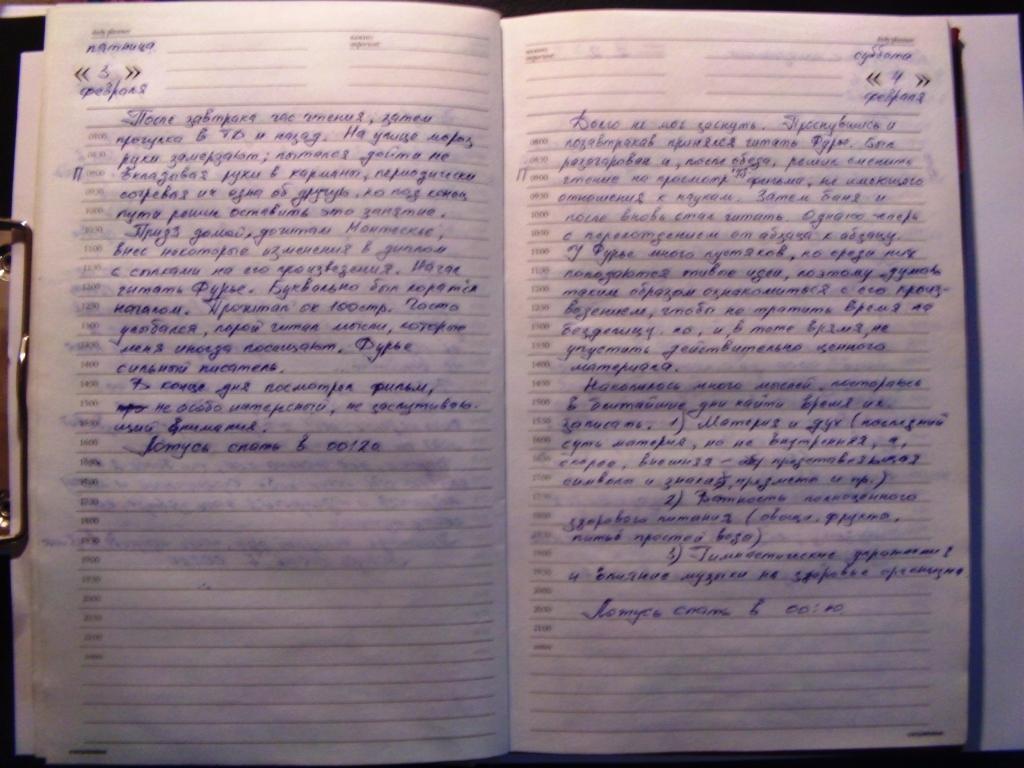 daily planner
пятница
важно
important
« 3 »
февраля
После завтрака час чтения, затем
прогулка в ТВ и назад. На улице мороз,
руки замерзают; пытался дойти не
вкладывая руки в карман, периодически
согревая их одна об другую, но под конец
пути решил оставить это занятие.
Придя домой, дочитал Монтескье,
внес некоторые изменения в диплом
с сылками на его произведения. Начал
читать Фурье. Буквально был поражён
началом. Прочитал ок 100 стр. Часто
улыбался, порой читал мысли, которые
меня иногда посещают. Фурье
сильный писатель.
В конце дня посмотрел фильм,
не особо интересный, не заслуживаю-
щий внимания.
Ложусь спать в 00:20
08:00
08:30
09:00
09:30
10:00
10:30
11:00
11:30
12:00
12:30
13:00
13:30
14:00
14:30
15:00
15:30
16:00
16:30
17:00
17:30
18:00
18:30
19:00
19:30
20:00
20:30
21:00
daily planner
важно
important
суббота
« 4 »
февраля
Долго не мог заснуть. Проснувшись и
позавтракав принялся читать Фурье. Был
разочарован и, после обеда, решил сменить
чтение на просмотр фильма, не имеющего
отношения к наукам. Затем баня и
после вновь стал читать. Однако теперь
с перехождением от абзаца к абзацу.
У Фурье много пустяков, но среди них
попадаются живые идеи, поэтому думаю
таким образом ознакомиться с его произ-
ведением, чтобы не тратить время на
безделицу, но, и, в тоже время, не
упустить действительно ценного
материала.
Накопилось много мыслей, постараюсь
в ближайшие дни найти время их
записать. 1) Материя и дух (последний
суть материя, но не внутренняя, а,
скорее, внешняя – представляемая
символа и знака, предмета и пр.)
2) Важность полноценного
здорового питания (овощи, фрукты,
питьё простой воды)
3) Гимнастические упражнения
и влияние музыки на здоровье организма.
Ложусь спать в 00:10